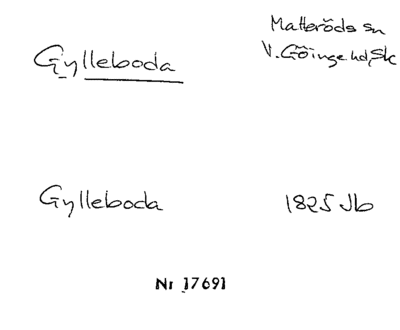 Gylleboda
Matteröds sn
V. Göinge hd, Sk
Gylleboda
1825 Jb
Nr 17691